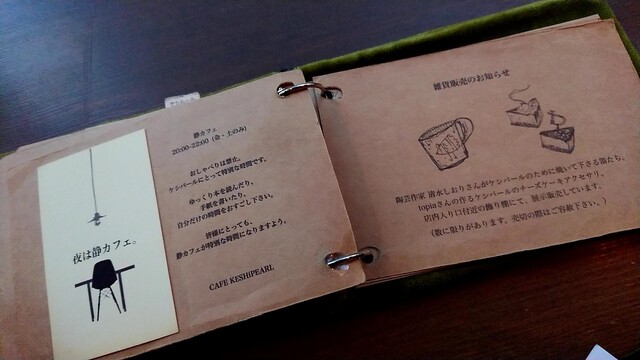 夜は静カフェ。
静カフェ
20:00-22:00 (金・土のみ)
おしゃべりは禁止。
ケシパールにとって特別な時間です。
ゆっくり本を読んだり、
手紙を書いたり、
自分だけの時間をおすごし下さい。
皆様にとっても、
静カフェが特別な時間になりますよう。
CAFE KESHIPEARL
雑貨販売のお知らせ
陶芸作家 清水しおりさんがケシパールのために焼いて下さる器たち。
topiaさんの作るケシパールのチーズケーキアクセサリ。
店内入り口付近の飾り棚にて、展示販売しています。
(数に限りがあります。売切の際はご容赦下さい。)